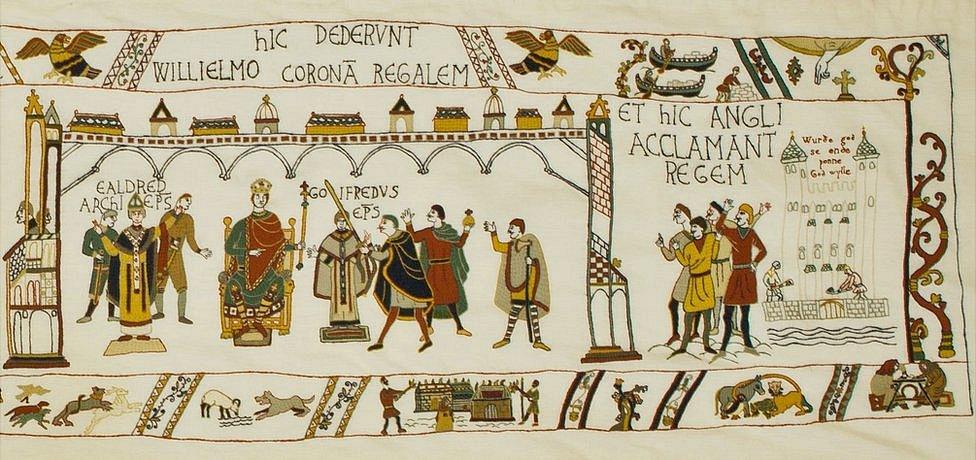 hIC DEDERVNT
WILLIELMO CORONĀ REGALEM
EALDRED
ARCHI EP̄S
GOIFREDVS
EP̄S
ET hIC ANGLI
ACCLAMANT
REGEM
Wurðe god
se ende
þonne
God wylle